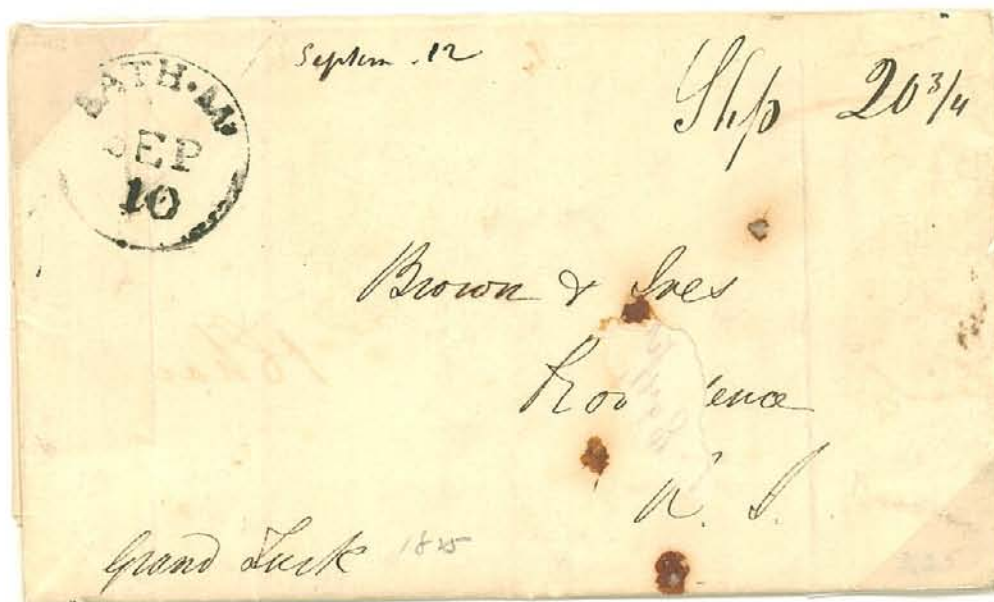 BATH·M
SEP
10
Septem . 12
Ship 20 3/4
Brown & Ives
Prov ence
R. I.
Grand Turk 1825